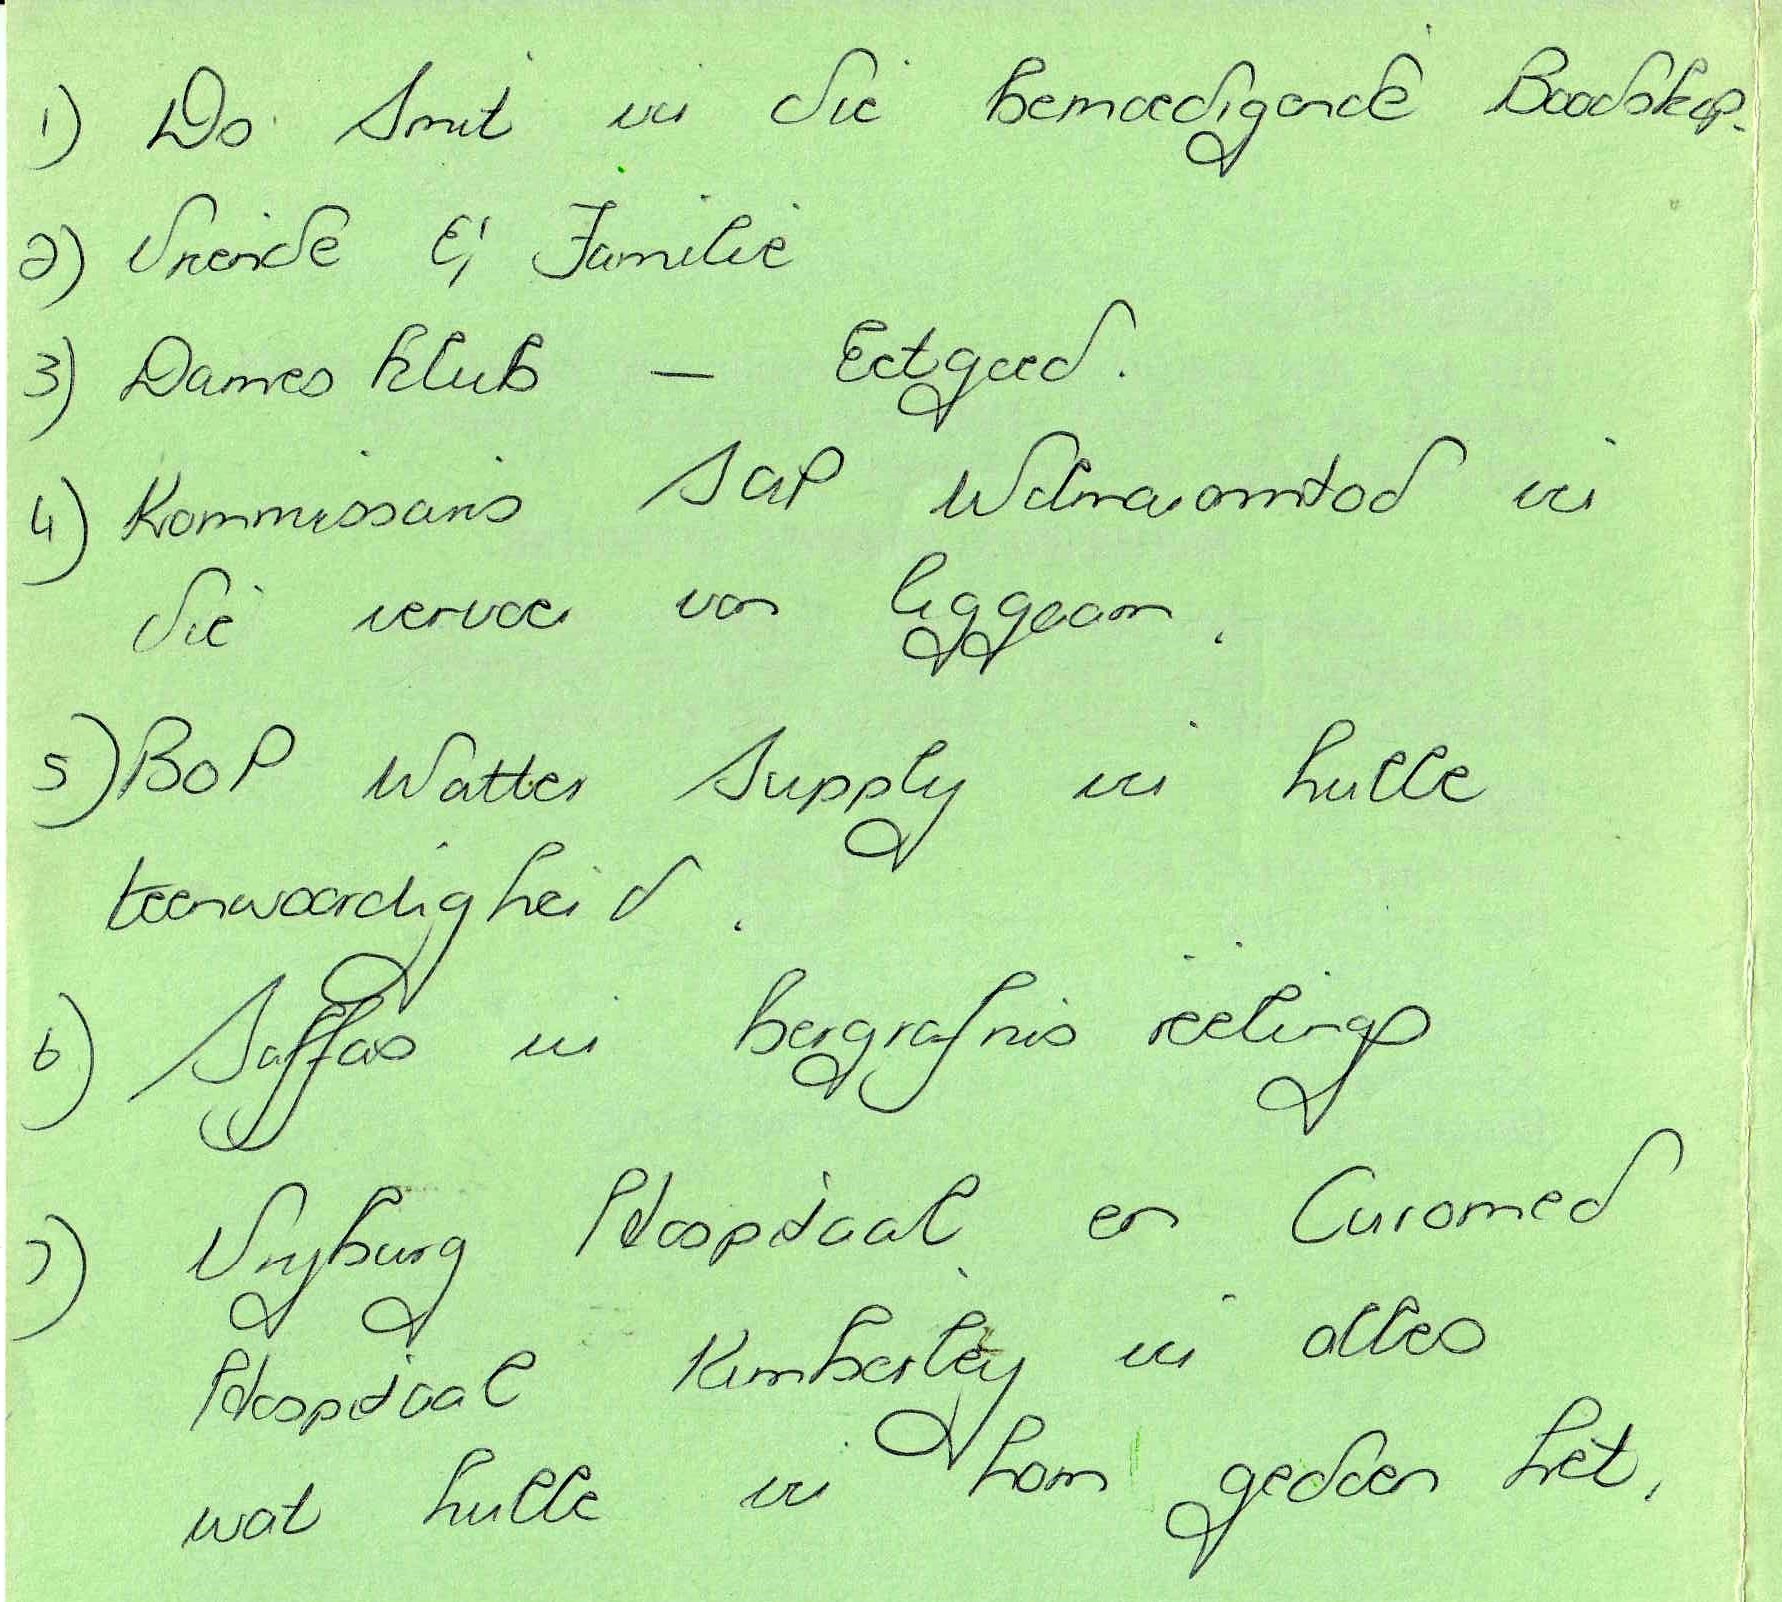 1) Ds Smit vir die bemoedigende Boodskap.
2) Vriende & Familie
3) Dames Klub — Eetgoed.
4) Kommissaris SAP Wdmaranstad vir
die vervoer van liggaam.
5) BOP Watter Supply vir hulle
teenwoordigheid.
6) Saffas vir bergrafnis reëlings
7) Vryburg Hospitaal en Curomed
Hospitaal Kimberley vir alles
wat hulle vir hom gedoen het.